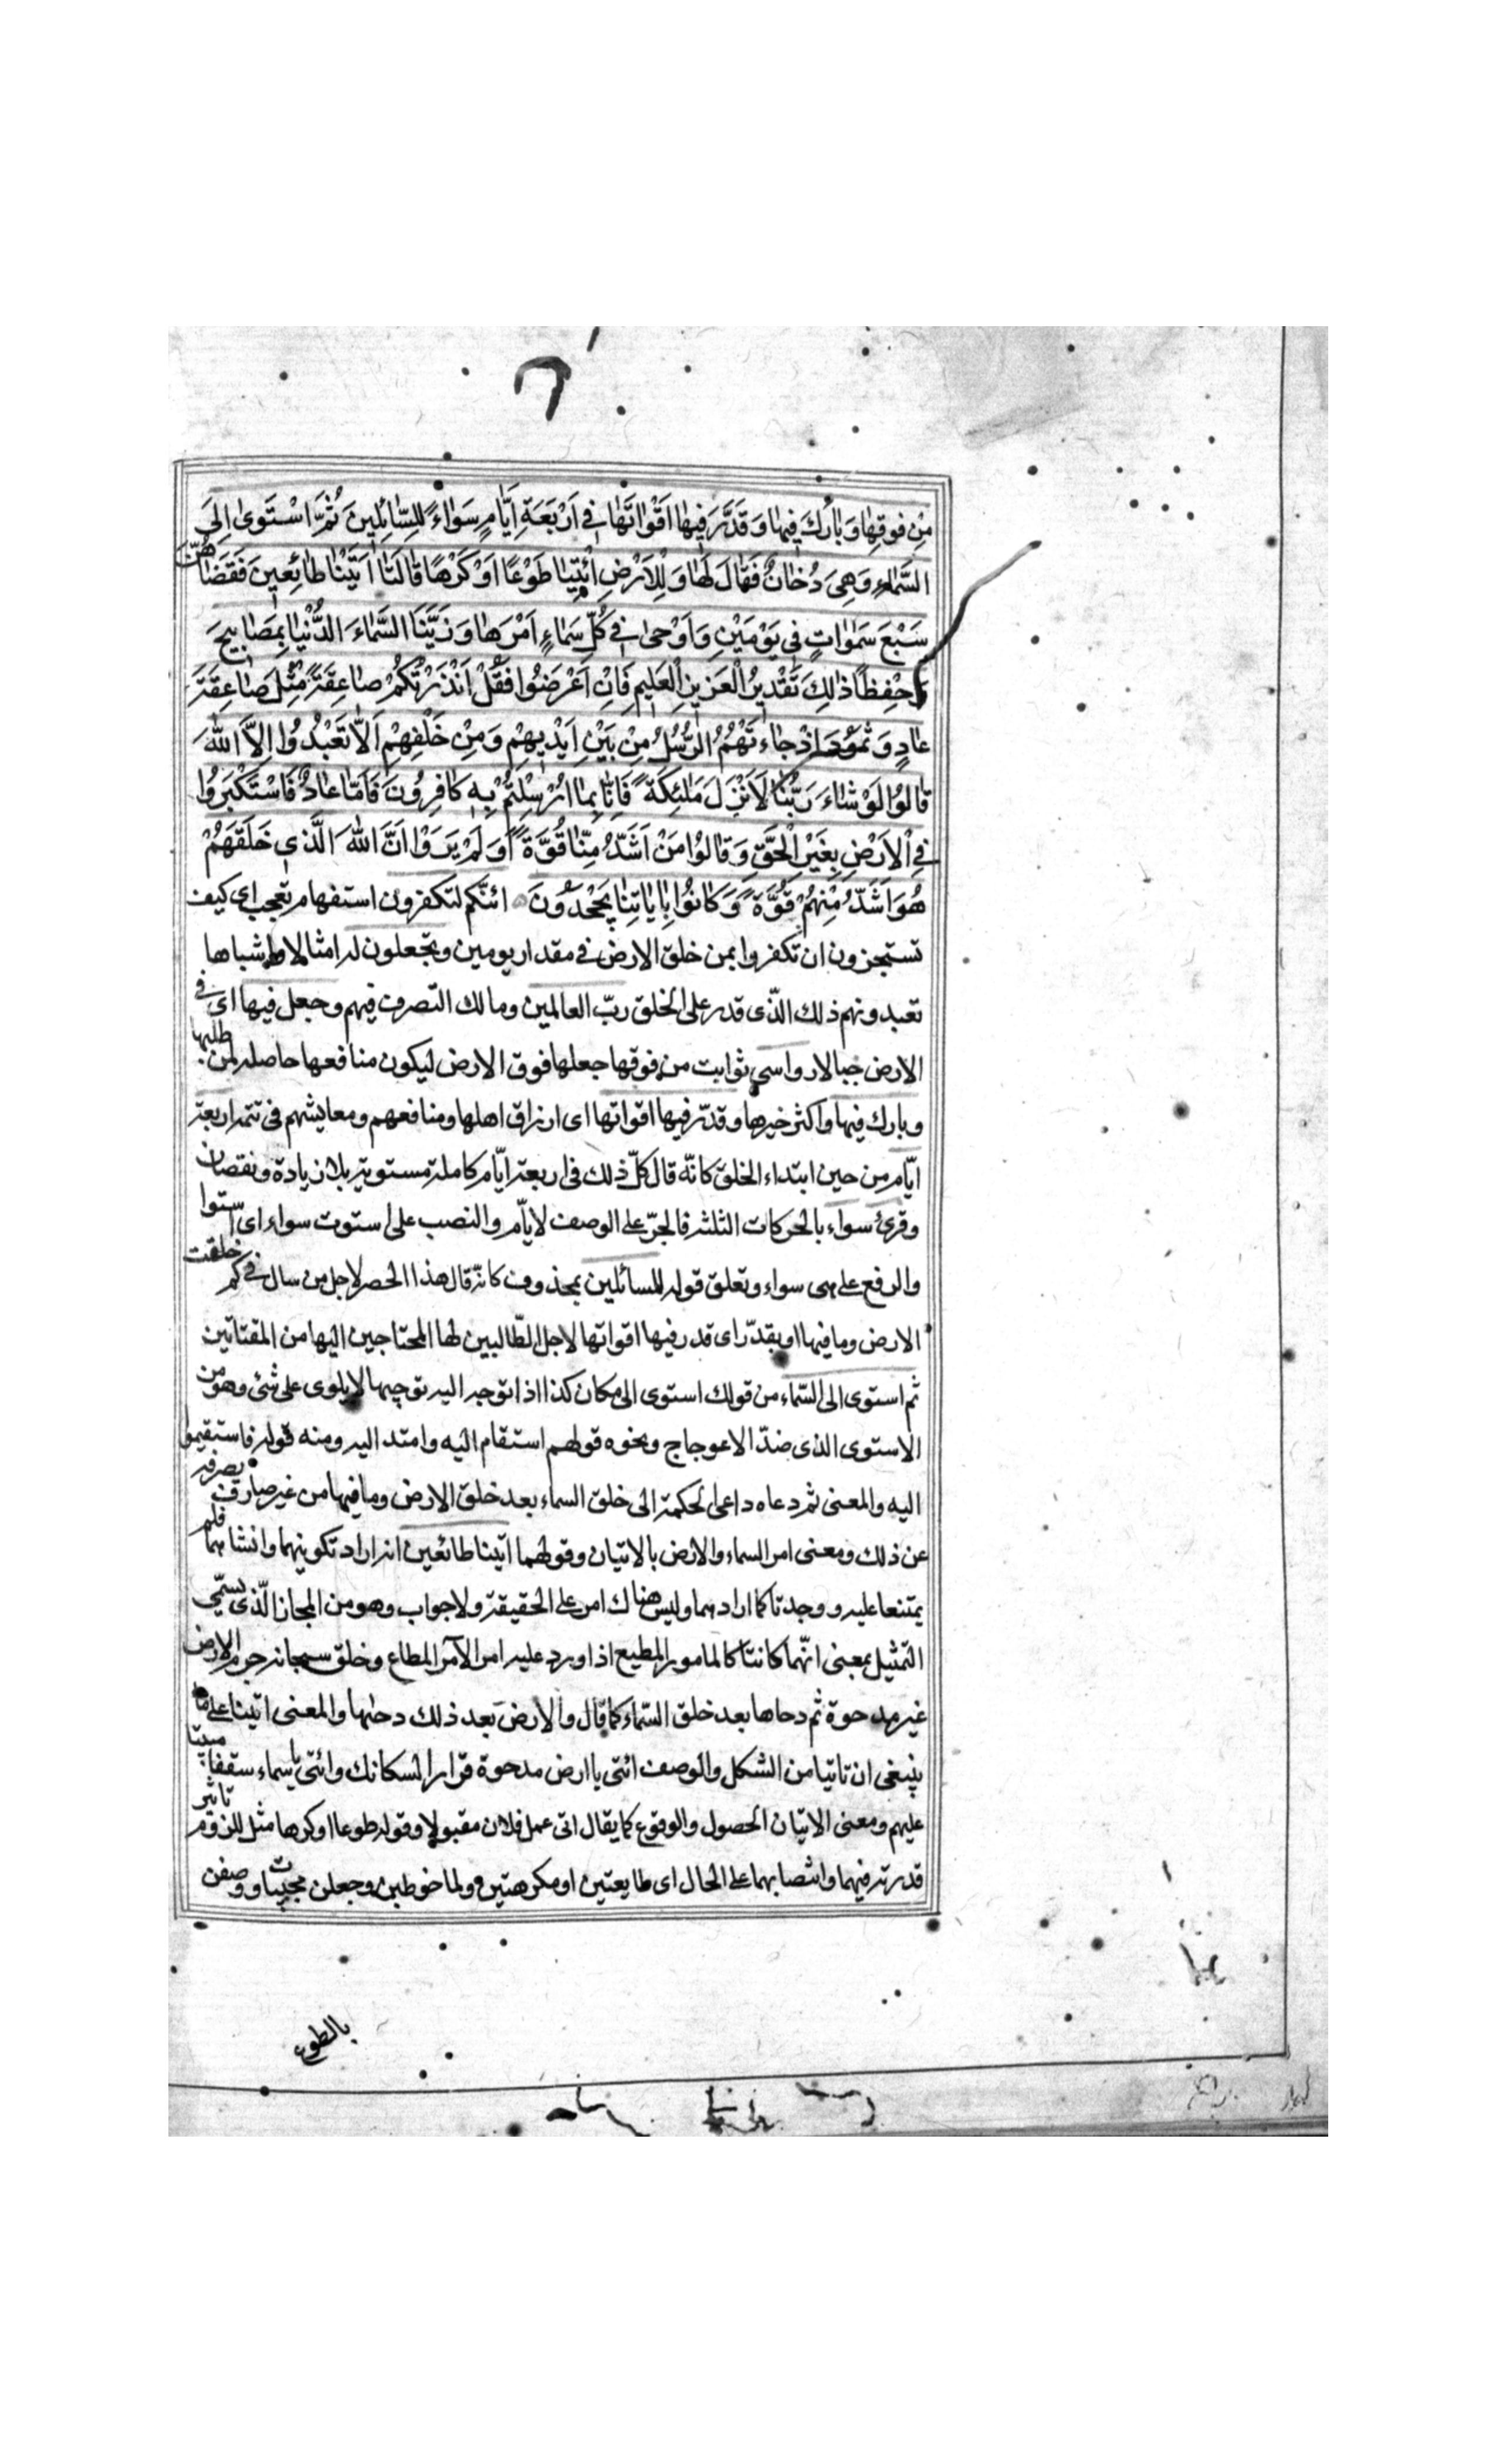 مِنْ فَوْقِهٰا وَبٰارَكَ فِيهٰا وَقَدَّرَ فِيهٰا اَقْوٰاتَهٰا فِي اَرْبَعَةِ اَيّٰامٍ سَوٰاءً لِلسّٰائِلِينَ ثُمَّ اسْتَوىٰ اِلَى
السَّمٰاءِ وَهِيَ دُخٰانٌ فَقٰالَ لَهٰا وَلِلْاَرْضِ ائْتِيٰا طَوْعًا اَوْ كَرْهًا قٰالَتٰا اَتَيْنٰا طٰائِعِينَ فَقَضٰاهُنَّ
سَبْعَ سَمٰوٰاتٍ فِي يَوْمَيْنِ وَاَوْحىٰ فِي كُلِّ سَمٰاءٍ اَمْرَهٰا وَزَيَّنَّا السَّمٰاءَ الدُّنْيٰا بِمَصٰابِيحَ
وَحِفْظًا ذٰلِكَ تَقْدِيرُ الْعَزِيزِ الْعَلِيمِ فَاِنْ اَعْرَضُوا فَقُلْ اَنْذَرْتُكُمْ صٰاعِقَةً مِثْلَ صٰاعِقَةِ
عٰادٍ وَثَمُودَ اِذْ جٰاءَتْهُمُ الرُّسُلُ مِنْ بَيْنِ اَيْدِيهِمْ وَمِنْ خَلْفِهِمْ اَلّٰا تَعْبُدُوا اِلَّا اللّٰهَ
قٰالُوا لَوْ شٰاءَ رَبُّنٰا لَاَنْزَلَ مَلٰئِكَةً فَاِنّٰا بِمٰا اُرْسِلْتُمْ بِهِ كٰافِرُونَ فَاَمّٰا عٰادٌ فَاسْتَكْبَرُوا
فِي الْاَرْضِ بِغَيْرِ الْحَقِّ وَقٰالُوا مَنْ اَشَدُّ مِنّٰا قُوَّةً اَوَلَمْ يَرَوْا اَنَّ اللّٰهَ الَّذِي خَلَقَهُمْ
هُوَ اَشَدُّ مِنْهُمْ قُوَّةً وَكٰانُوا بِاٰيٰاتِنٰا يَجْحَدُونَ ائنّكم لتكفرون استفهام تعجب اى كيف
تستجيزون ان تكفروا بمن خلق الارض فى مقدار يومين وتجعلون له امثالا واشباها
تعبدونهم ذلك الّذى قدر على الخلق ربّ العالمين ومالك التصرف فيهم وجعل فيها اى فى
الارض جبالا رواسي ثوابت من فوقها جعلها فوق الارض ليكون منافعها حاصلة لمن طلبها
وبارك فيها واكثر خيرها وقدّر فيها اقواتها اى ارزاق اهلها ومنافعهم ومعايشهم فى تتمة اربعة
ايّام من حين ابتداء الخلق كانّه قال كلّ ذلك فى اربعة ايّام كاملة مستوية بلا زيادة ونقصان
وقرئ سواء بالحركات الثلث فالجرّ على الوصف لايّام والنصب على استوت سواء اى استوا
والرفع على هى سواء وتعلق قوله للسائلين بمحذوف كانّه قال هذا الحصر لاجل من سال فى كم خلقت
الارض وما فيها او بقدّر اى قدر فيها اقواتها لاجل الطّالبين لها المحتاجين اليها من المقتاتين
ثم استوى الى السّماء من قولك استوى الى مكان كذا اذا توجه اليه توجها لا يلوى على شئ وهو من
الاستوى الذى ضدّ الاعوجاج ونحوه قولهم استقام اليه وامتد اليه ومنه قوله فاستقيموا
اليه والمعنى ثم دعاه داعى الحكمة الى خلق السماء بعد خلق الارض وما فيها من غير صارف يصرفه
عن ذلك ومعنى امر السماء والارض بالاتيان وقولهما اتينا طائعين انه اراد تكوينهما وانشاهما فلم
يمتنعا عليه ووجدتا كما ارادهما وليس هناك امر على الحقيقة ولا جواب وهو من المجاز الّذى يسمّى
التمثيل بمعنى انّهما كانتا كالمامور المطيع اذا ورد عليه امر الآمر المطاع وخلق سبحانه جرم الارض
غير مدحوة ثم دحاها بعد خلق السّماء كما قال والارض بعد ذلك دحٰها والمعنى اتينا على ما
ينبغى ان تاتيا من الشكل والوصف ائتى يا ارض مدحوة قرارا لسكانك وائتى يا سماء سقفا مبنيّا
عليهم ومعنى الاتيان الحصول والوقوع كما يقال اتى عمل فلان مقبولا وقوله طوعا او كرها مثل للزوم تاثير
قدرته فيهما وانتصابهما على الحال اى طايعتين او مكرهتين ولما خوطبن وجعلن مجيبات ووصفن
بالطوع